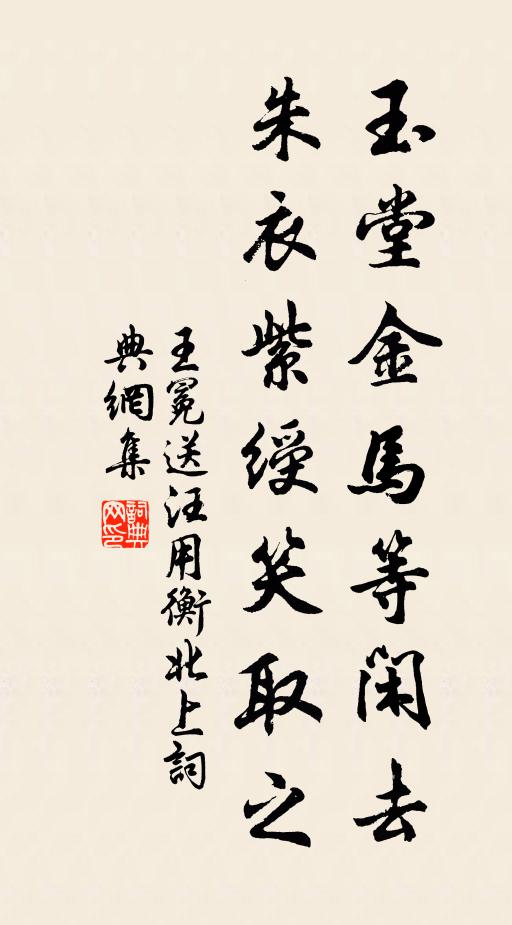 玉堂金馬等閑去
朱衣紫綬笑取之
王冕送汪用衡北上詞
典網集
詞典
网印